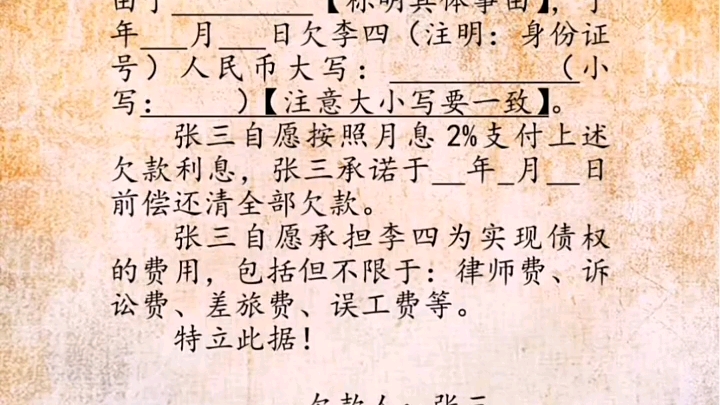 由于__________【标明具体事由】，于
年___月___日欠李四（注明：身份证
号）人民币大写：____________（小
写：______）【注意大小写要一致】。
张三自愿按照月息2%支付上述
欠款利息，张三承诺于__年_月__日
前偿还清全部欠款。
张三自愿承担李四为实现债权
的费用，包括但不限于：律师费、诉
讼费、差旅费、误工费等。
特立此据！
欠款人：张三